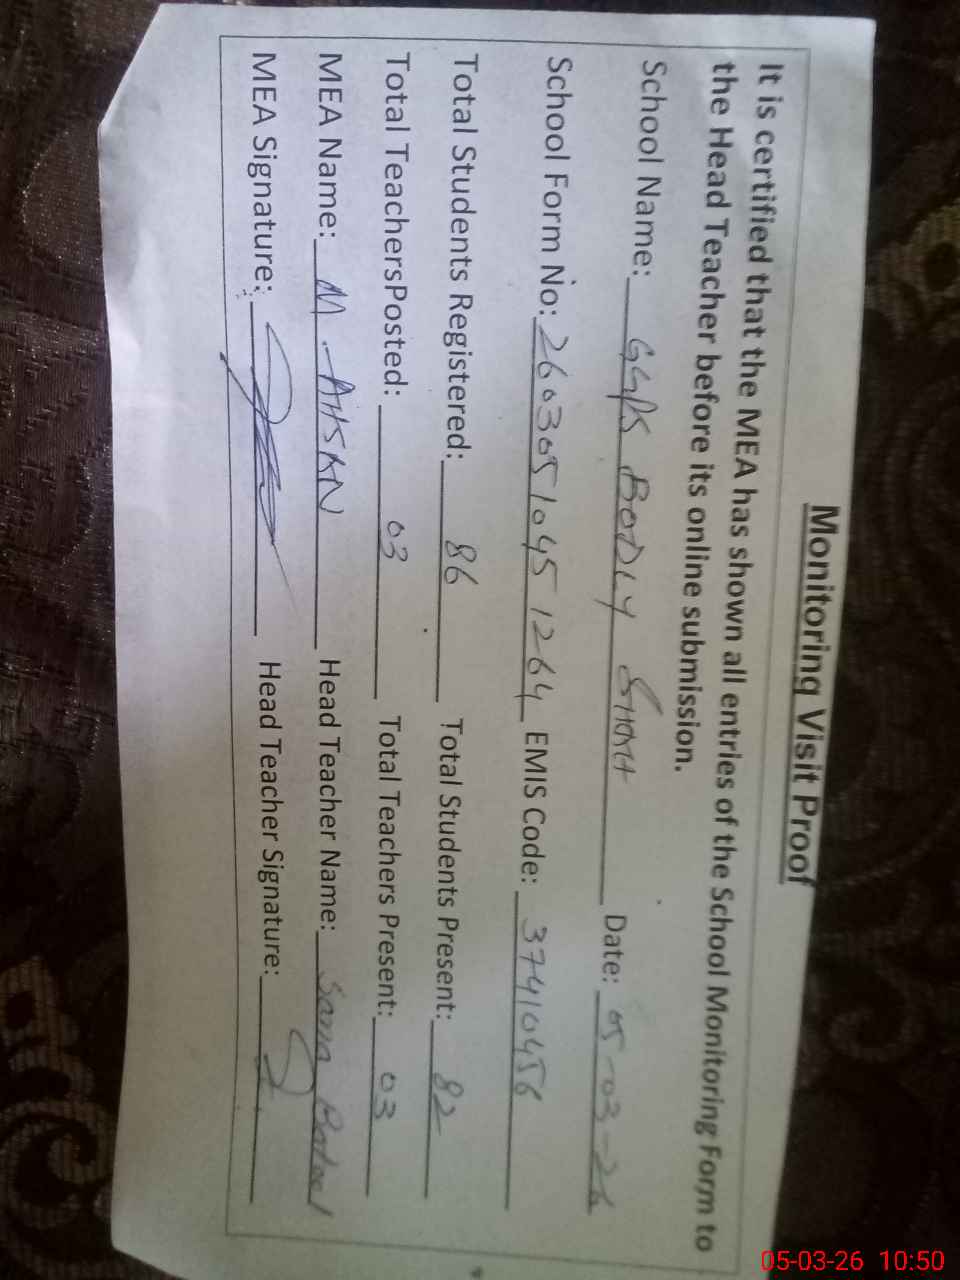 Monitoring Visit Proof
It is certified that the MEA has shown all entries of the School Monitoring Form to
the Head Teacher before its online submission.
School Name: GGPS BODLY Date: 05-03-26
School Form No: 2603051045 1264 EMIS Code: 37410456
Total Students Registered: 86 Total Students Present: 82
Total TeachersPosted: 03 Total Teachers Present: 03
MEA Name: M. AHSAN Head Teacher Name: Saira Batool
MEA Signature: Head Teacher Signature:
05-03-26 10:50